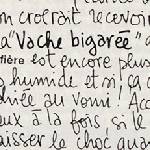 on croirait recevoir
la "Vache bigarée" a
fière est encore plus
s humide et si ça a
au vomi! Acc
eux à la fois si le
aisser le choc quan